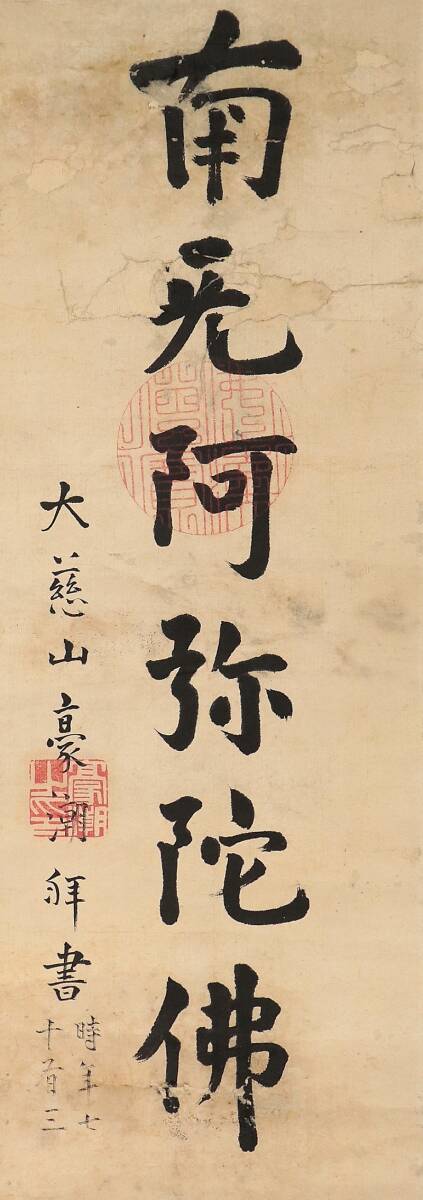 南无阿弥陀佛
大慈山豪潮拜書
時年七
十有三
豪潮